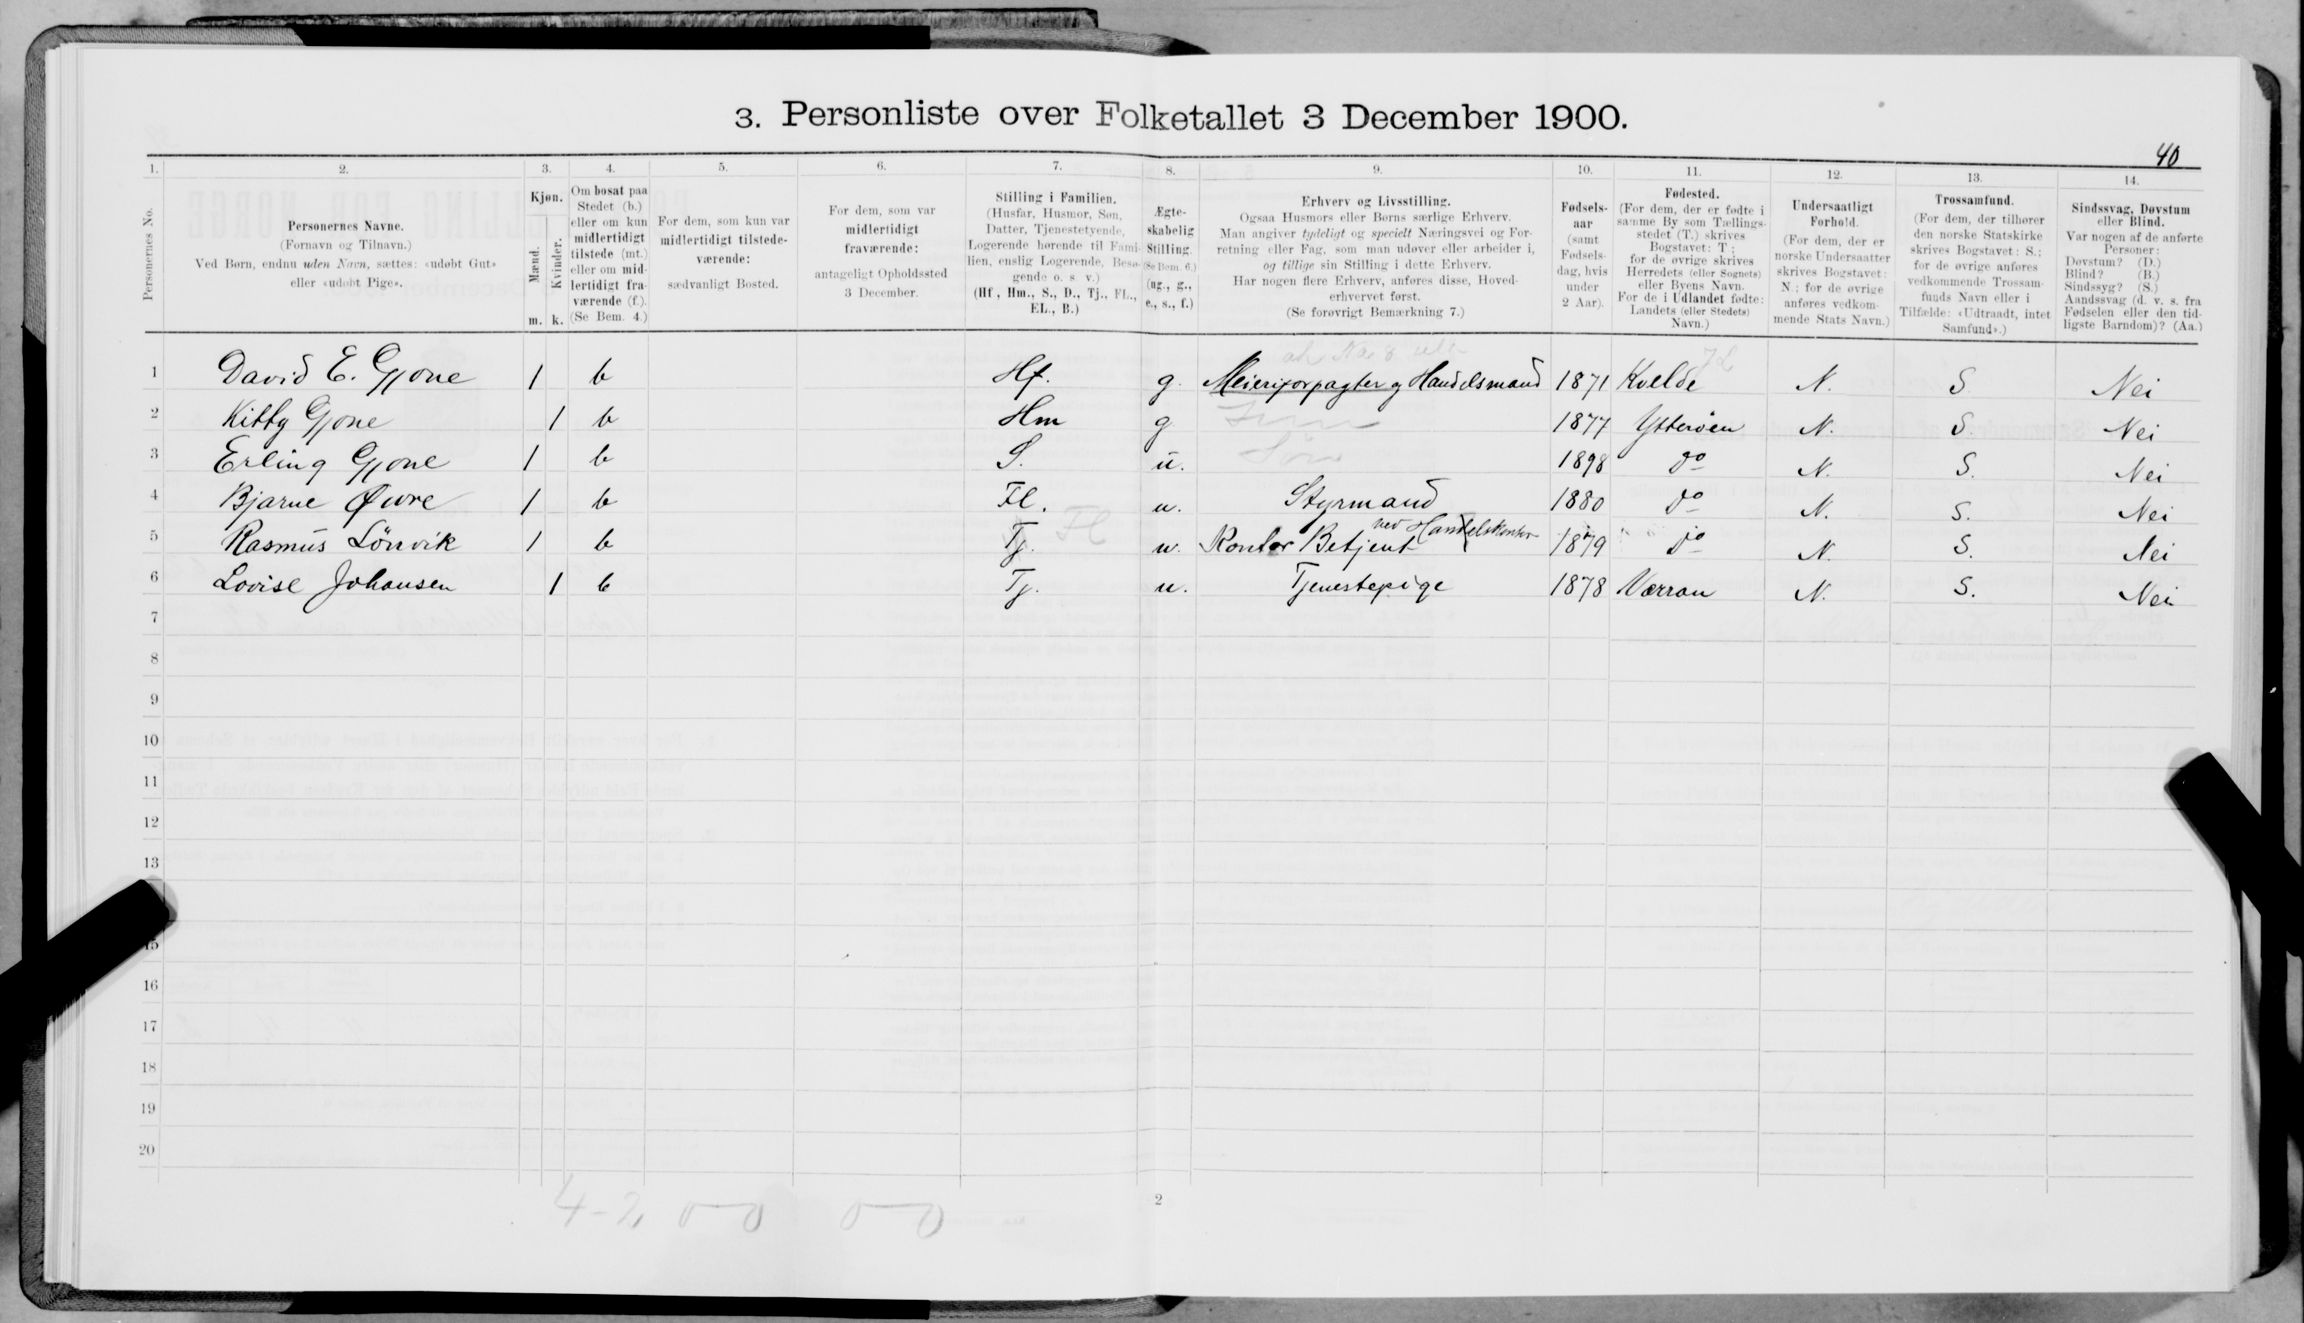 3. Personliste over Folketallet 3 December 1900.
40
1. 2. 3. 4. 5. 6. 7. 8. 9. 10. 11. 12. 13. 14.
Personernes No.
Personernes Navne.
(Fornavn og Tilnavn.)
Ved Børn, endnu uden Navn, sættes: «udøbt Gut»
eller «udøbt Pige».
Kjøn.
Mænd. Kvinder.
m. k.
Om bosat paa
Stedet (b.)
eller om kun
midlertidigt
tilstede (mt.)
eller om mid-
lertidigt fra-
værende (f.).
(Se Bem. 4.)
For dem, som kun var
midlertidigt tilstede-
værende:
sædvanligt Bosted.
For dem, som var
midlertidigt
fraværende:
antageligt Opholdssted
3 December.
Stilling i Familien.
(Husfar, Husmor, Søn,
Datter, Tjenestetyende,
Logerende hørende til Fami-
lien, enslig Logerende, Besø-
gende o. s. v.)
(Hf, Hm., S., D., Tj., FL.,
EL., B.)
Ægte-
skabelig
Stilling.
(Se Bem. 6.)
(ug., g.,
e., s., f.)
Erhverv og Livsstilling.
Ogsaa Husmors eller Børns særlige Erhverv.
Man angiver tydeligt og specielt Næringsvei og For-
retning eller Fag, som man udøver eller arbeider i,
og tillige sin Stilling i dette Erhverv.
Har nogen flere Erhverv, anføres disse, Hoved-
erhvervet først.
(Se forøvrigt Bemærkning 7.)
Fødsels-
aar
(samt
Fødsels-
dag, hvis
under
2 Aar).
Fødested.
(For dem, der er fødte i
samme By som Tællings-
stedet (T.) skrives
Bogstavet: T;
for de øvrige skrives
Herredets (eller Sognets)
eller Byens Navn.
For de i Udlandet fødte:
Landets (eller Stedets)
Navn.)
Undersaatligt
Forhold.
(For dem, der er
norske Undersaatter
skrives Bogstavet:
N.; for de øvrige
anføres vedkom-
mende Stats Navn.)
Trossamfund.
(For dem, der tilhører
den norske Statskirke
skrives Bogstavet: S.;
for de øvrige anføres
vedkommende Trossam-
funds Navn eller i
Tilfælde: «Udtraadt, intet
Samfund».)
Sindssvag, Døvstum
eller Blind.
Var nogen af de anførte
Personer:
Døvstum? (D.)
Blind? (B.)
Sindssyg? (S.)
Aandssvag (d. v. s. fra
Fødselen eller den tid-
ligste Barndom)? (Aa.)
1 David E. Gjone 1 b Hf. g. Meieriforpagter og Handelsmand 1871 Kvelde N. S. Nei
2 Kitty Gjone 1 b Hm g 1877 Ytterøen N. S. Nei
3 Erling Gjone 1 b S. u. Søn 1898 do N. S. Nei
4 Bjarne Øwre 1 b Fl. u. Styrmand 1880 do N. S. Nei
5 Rasmus Lönvik 1 b Tj. Fl u. Kontor Betjent ved Handelskontor 1879 do N. S. Nei
6 Lovise Johansen 1 b Tj. u. Tjenestepige 1878 Værran N. S. Nei
7
8
9
10
11
12
13
15
16
17
18
19
20
4-2 0-0 0-0
2